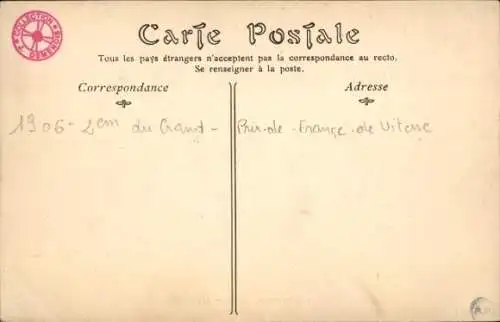 COLLECTION
Carte Postale
Tous les pays étrangers n'acceptent pas la correspondance au recto.
Se renseigner à la poste.
Correspondance
Adresse
1906 - 2em du Grand - Prix - de - France - de Vitesse